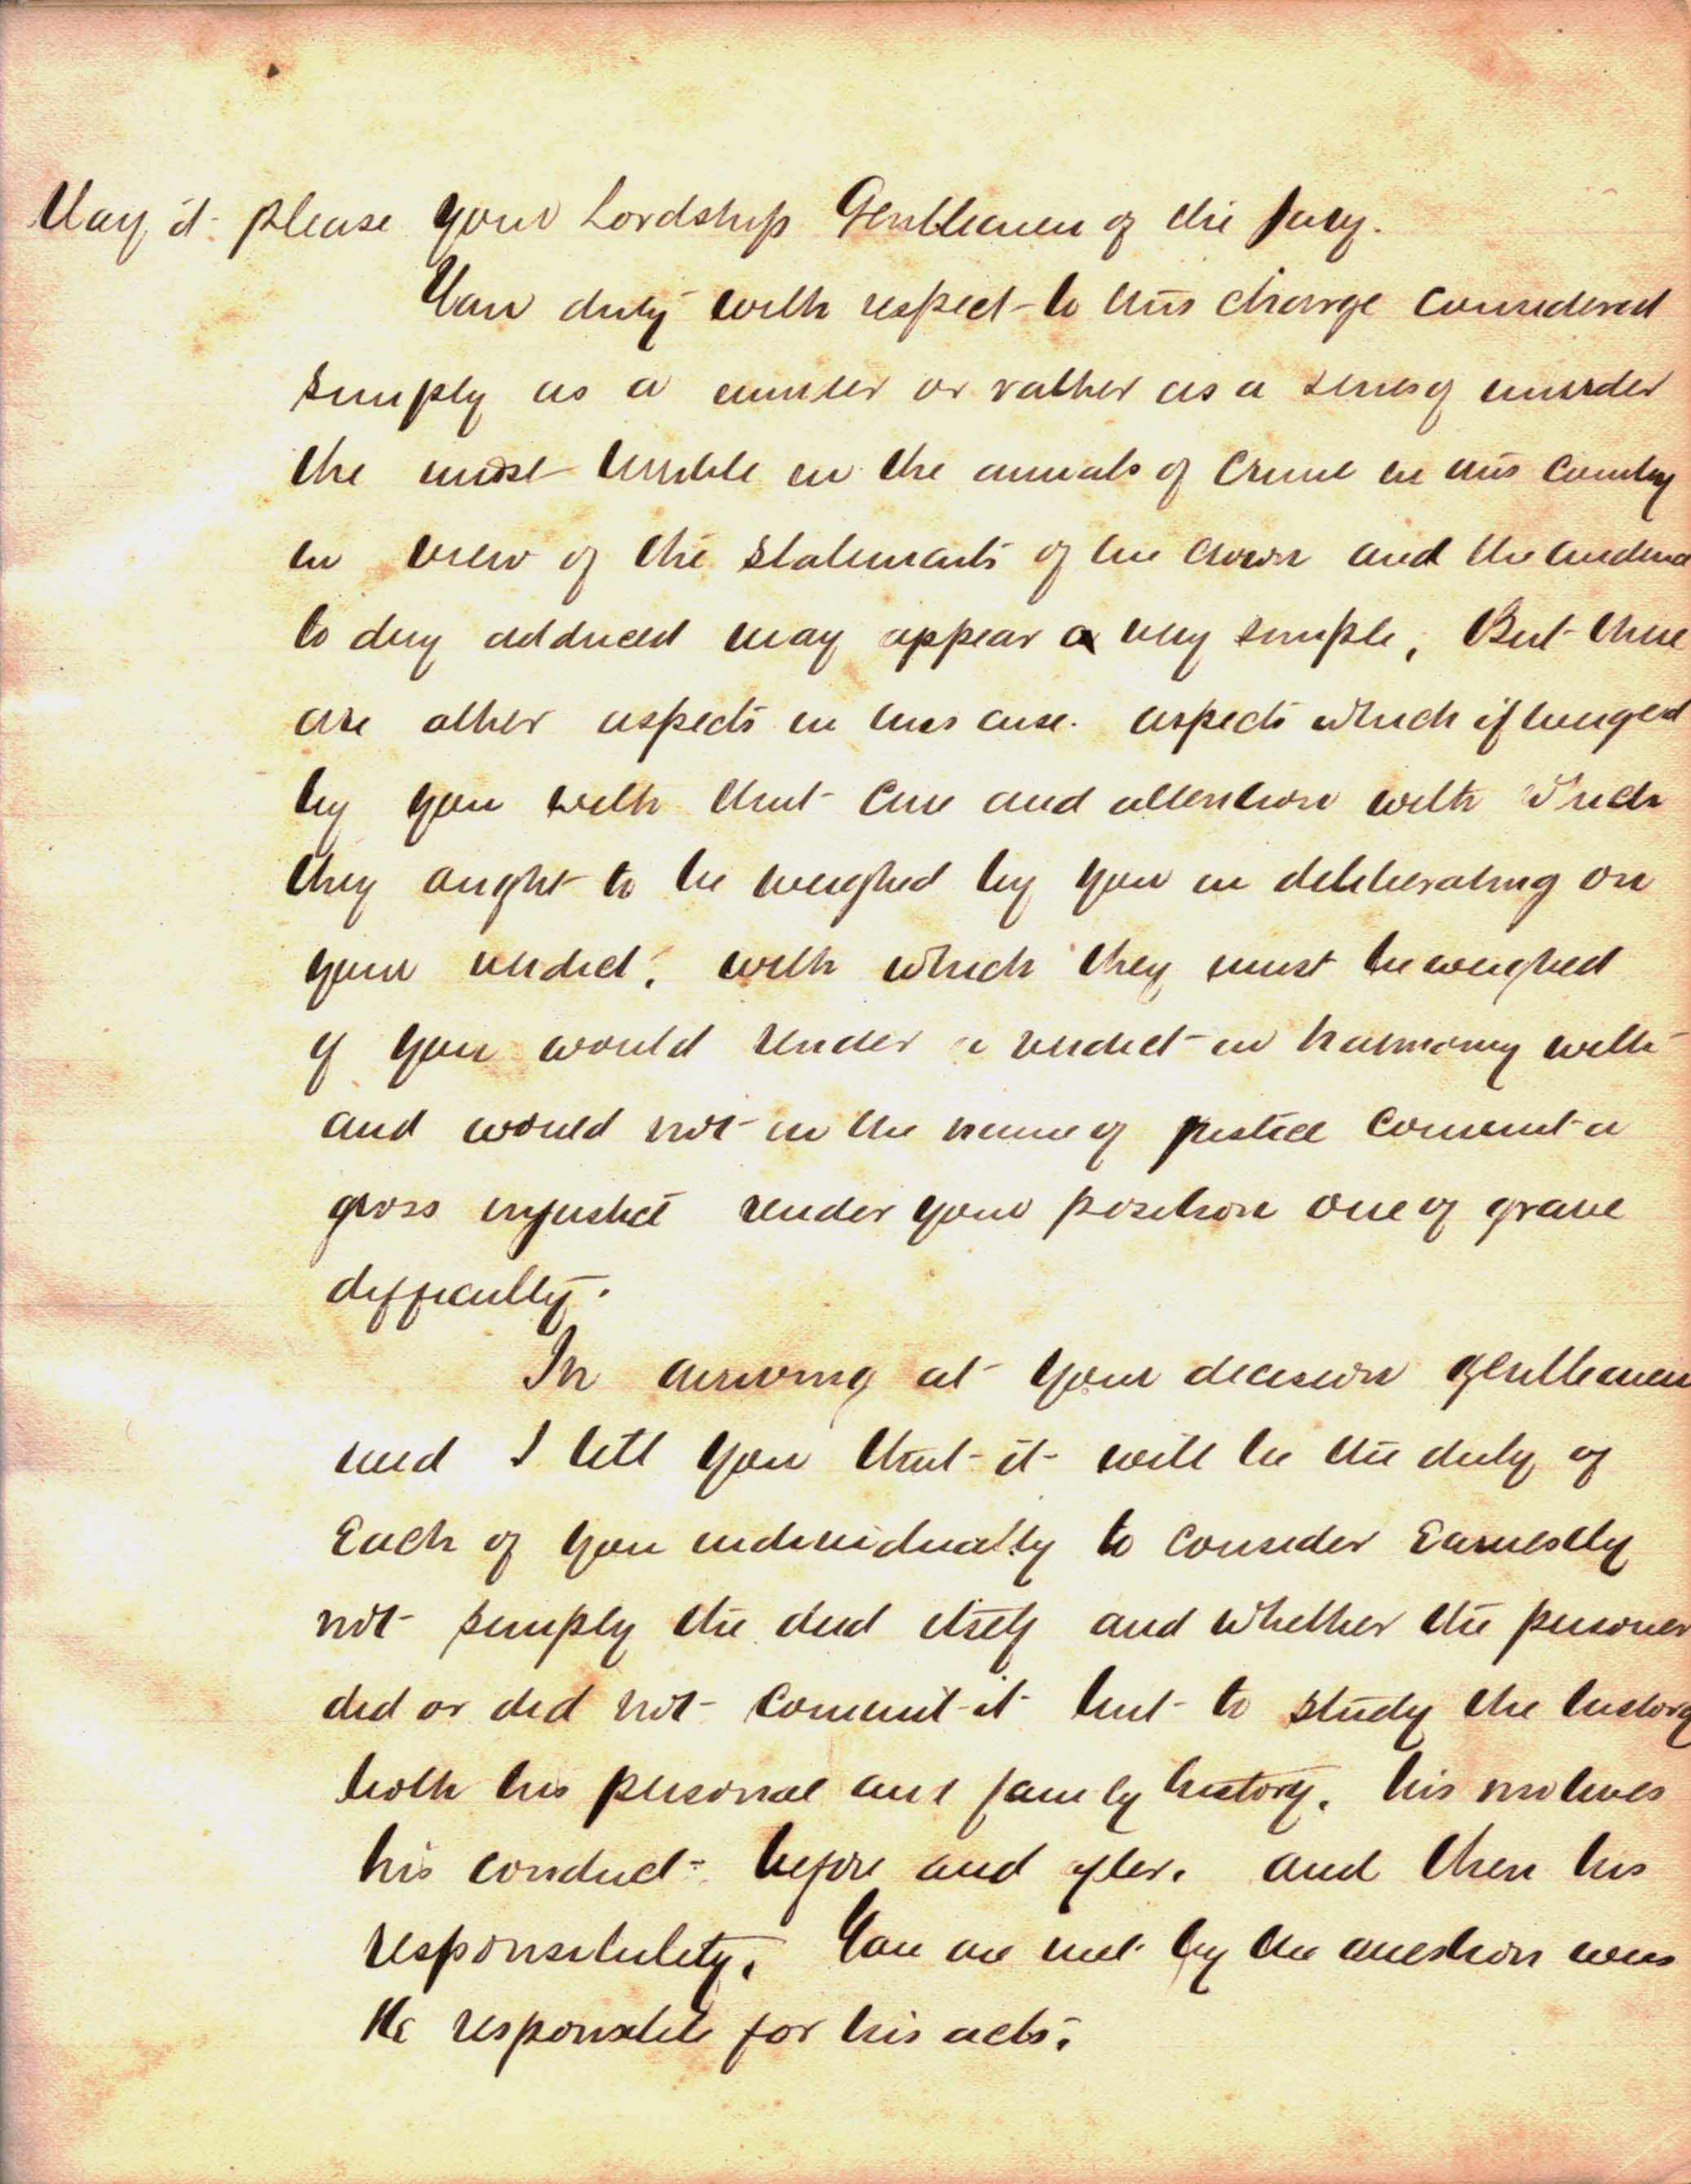 May it please your Lordship Gentlemen of the Jury.
Your duty with respect to this charge considered
simply as a murder or rather as a series of murder
the most terrible in the annals of crime in this country
in view of the statements of the crown and the evidence
to day adduced may appear a very simple, But there
are other aspects in this case. aspects which if weighed
by you with that care and attention with which
they ought to be weighed by you in deliberating on
your verdict, with which they must be weighed
if you would render a verdict in harmony with
and would not in the name of justice commit a
gross injustice render your position one of grave
difficulty.
In arriving at your decision gentlemen
and I tell you that it will be the duty of
Each of you individually to consider Earnestly
not simply the deed itself and whether the prisoner
did or did not commit it but to study the history
both his personal and family history, his motives
his conduct before and after. and then his
responsibility. You are met by the question was
He responsible for his acts.